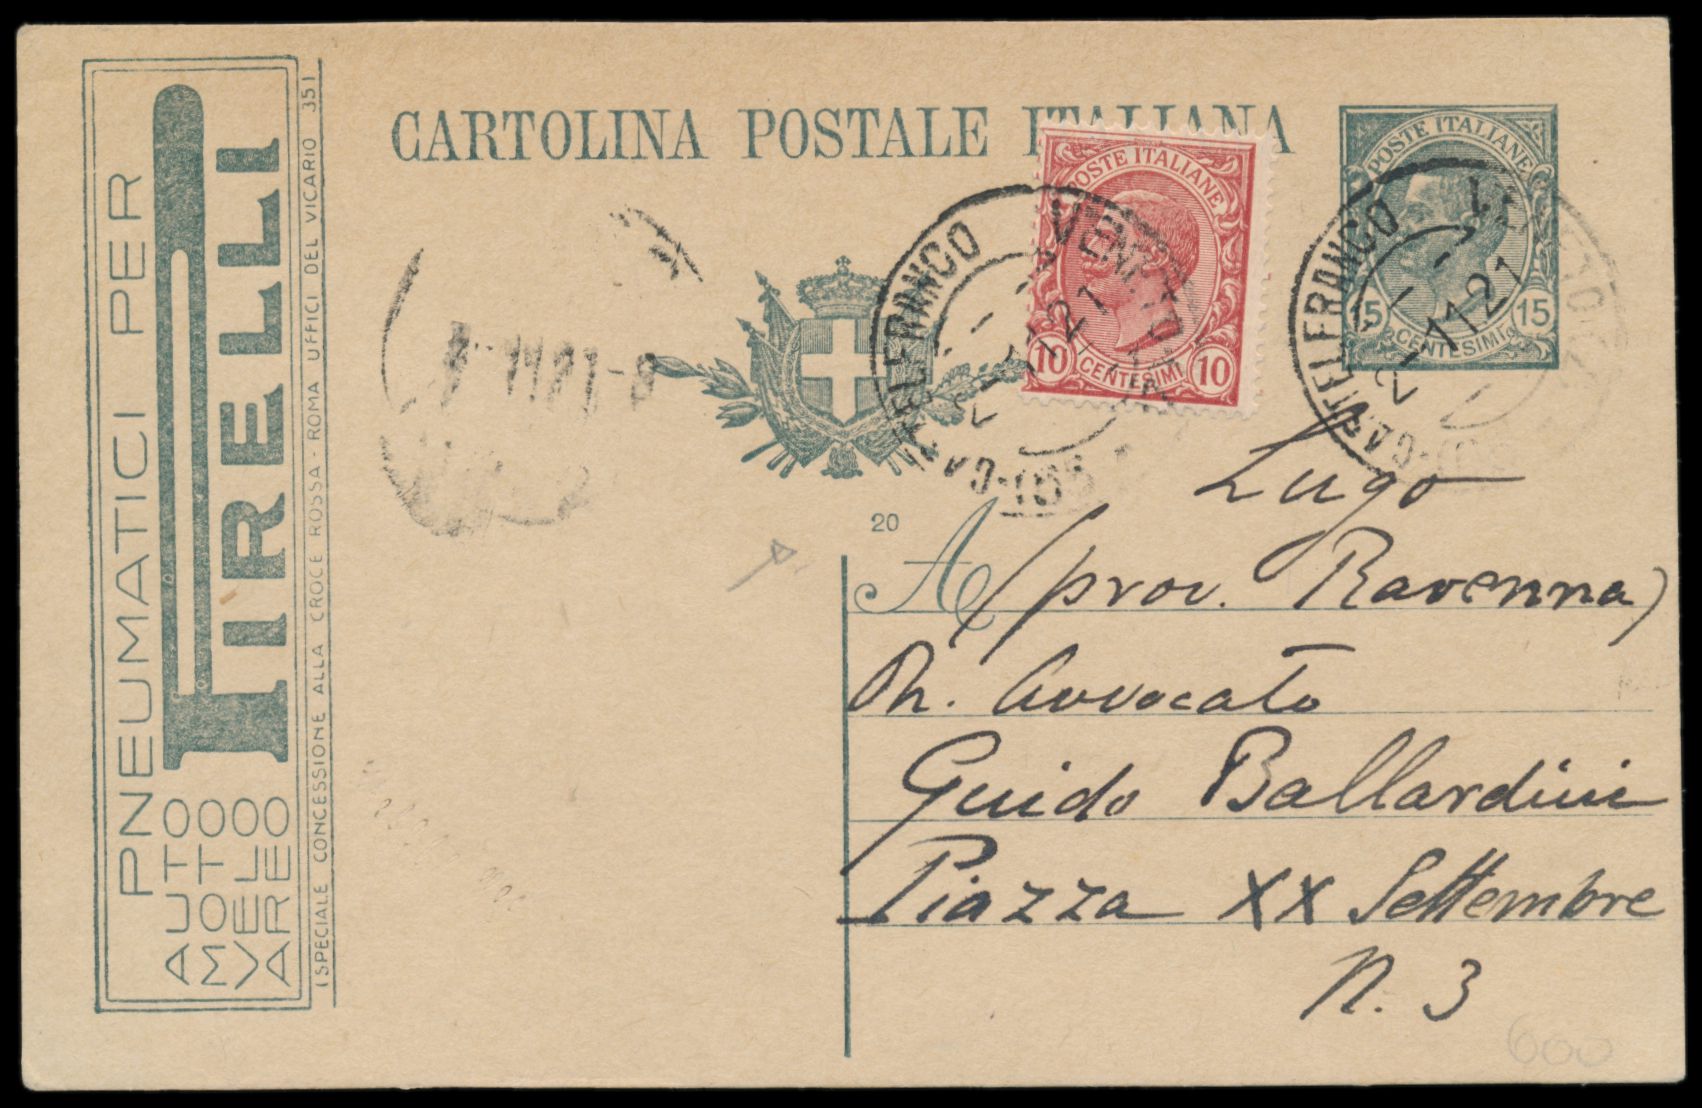 PNEUMATICI PER
PIRELLI
AUTO
MOTO
VELO
AREO
(SPECIALE CONCESSIONE ALLA CROCE ROSSA - ROMA UFFICI DEL VICARIO 35)
CARTOLINA POSTALE ITALIANA
POSTE ITALIANE
10 CENTESIMI 10
POSTE ITALIANE
15 CENTESIMI 15
CASTELFRANCO VENETO
2 - 11 21
CASTELFRANCO VENETO
2 - 11 21
20
A
Lugo
(prov. Ravenna)
On. Avvocato
Guido Ballardini
Piazza XX Settembre
N. 3
600